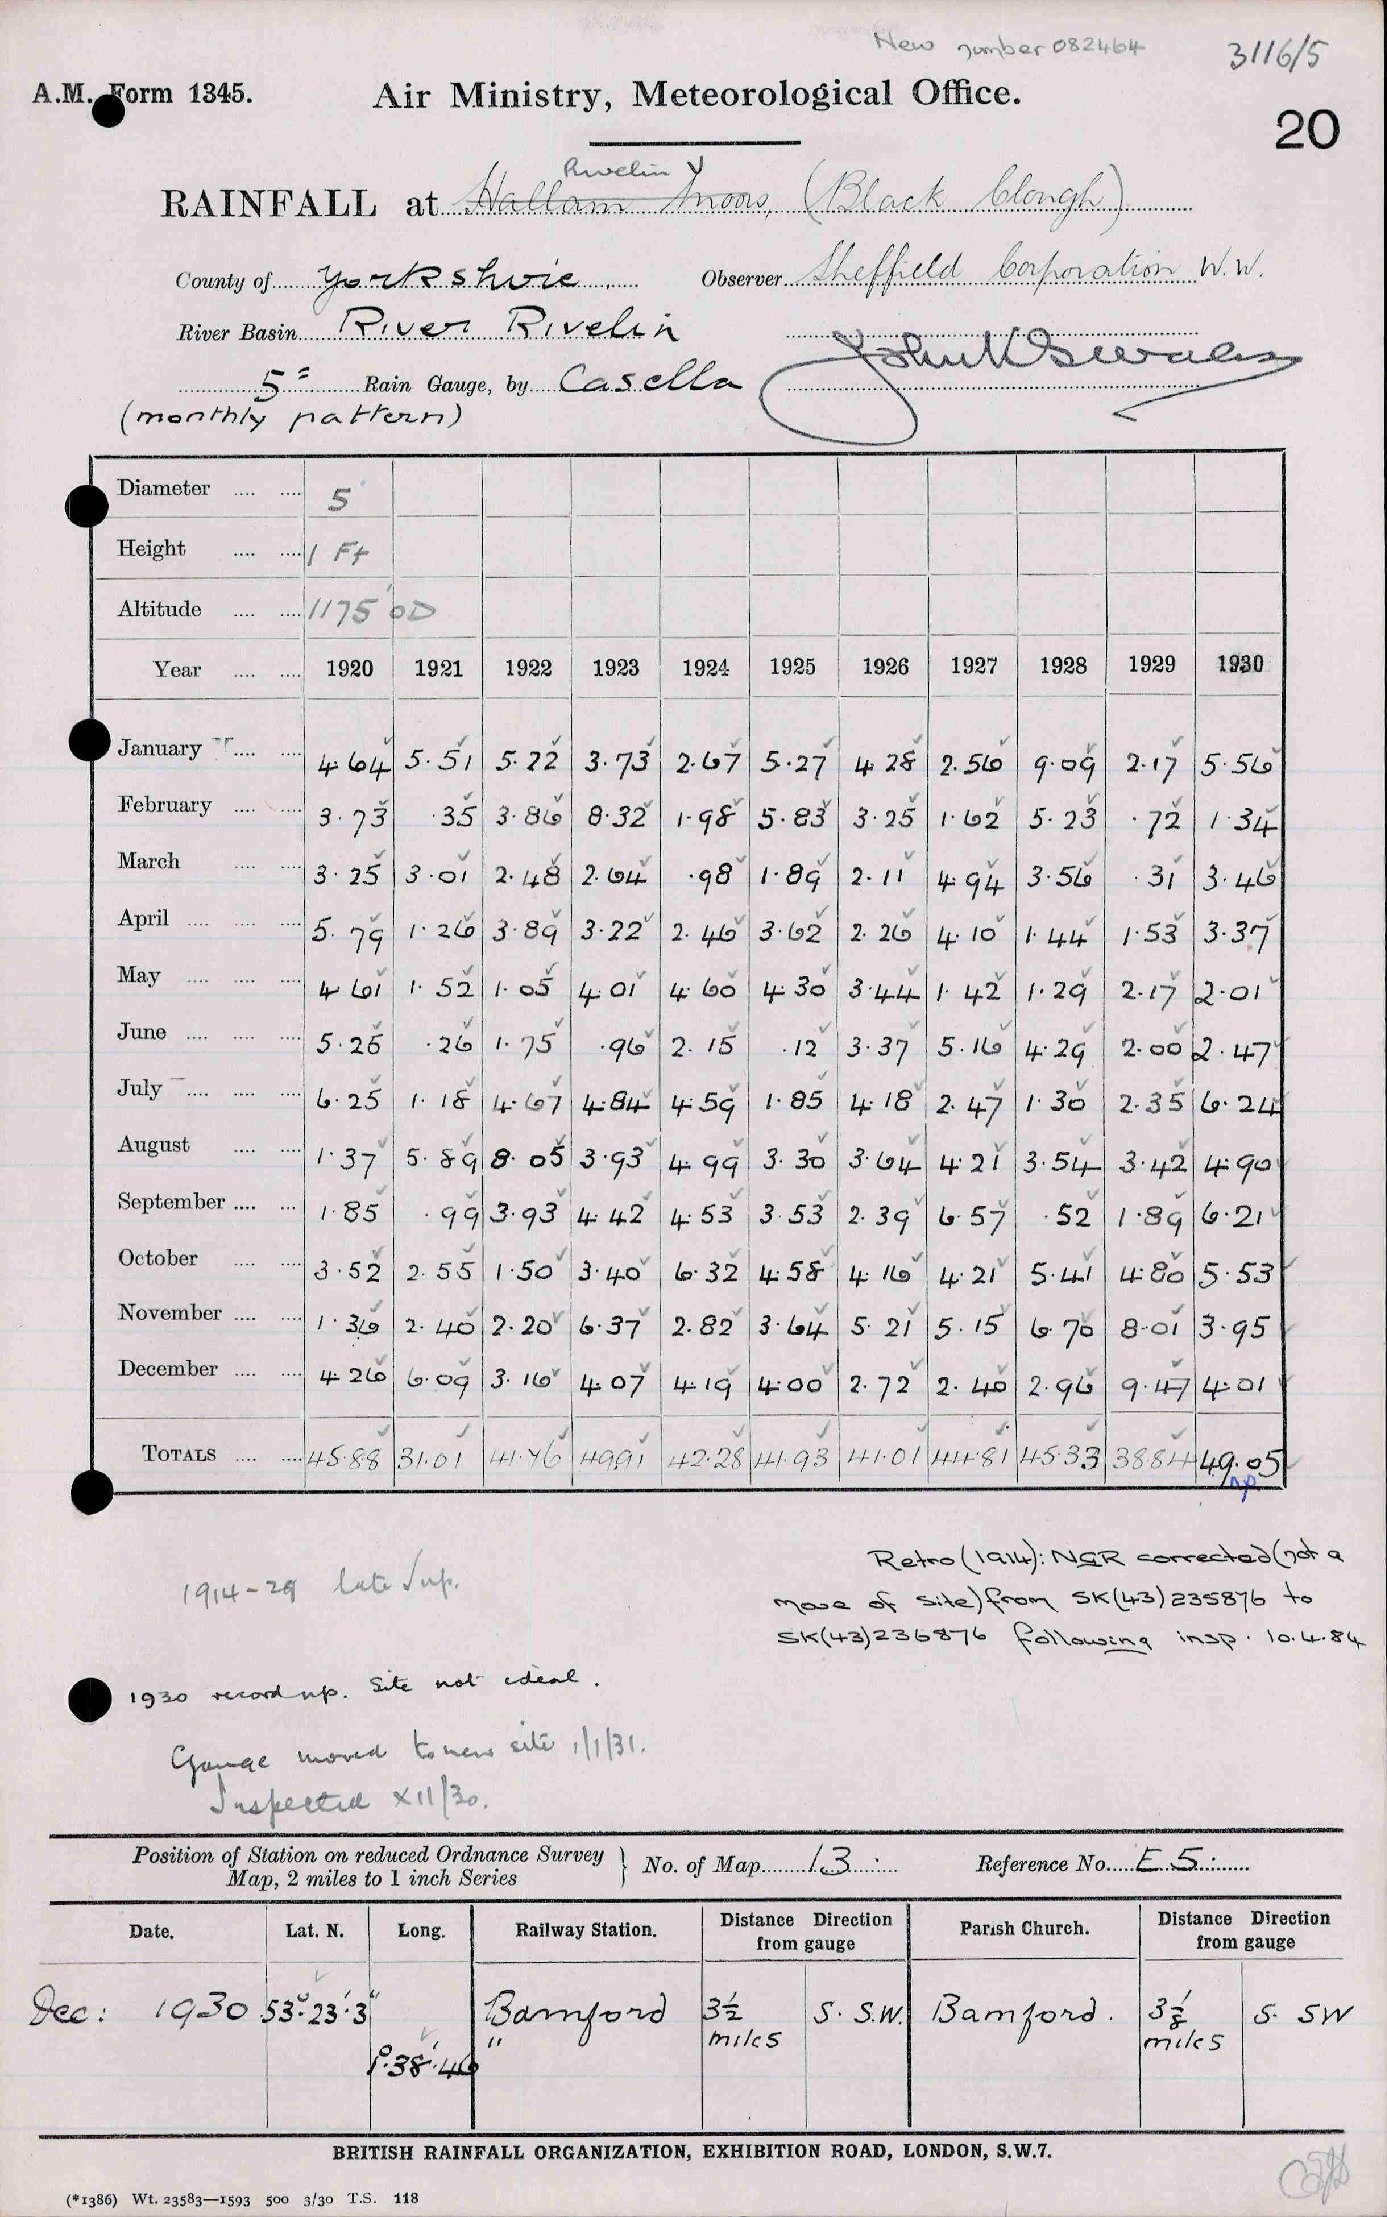 New number 082464
3116/5
A.M. Form 1345.
Air Ministry, Meteorological Office.
20
Rivelin
RAINFALL at Hallam Moors, (Black Clough)
County of Yorkshire Observer Sheffield Corporation W.W.
River Basin River Rivelin
5" Rain Gauge, by Casella
(monthly pattern)
Diameter 5
Height 1 Ft
Altitude 1175' OD
Year 1920 1921 1922 1923 1924 1925 1926 1927 1928 1929 1930
January 4.64 5.51 5.22 3.73 2.67 5.27 4.28 2.56 9.09 2.17 5.56
February 3.73 .35 3.86 8.32 1.98 5.83 3.25 1.62 5.23 .72 1.34
March 3.25 3.01 2.48 2.64 .98 1.89 2.11 4.94 3.56 .31 3.46
April 5.79 1.26 3.89 3.22 2.46 3.62 2.26 4.10 1.44 1.53 3.37
May 4.61 1.52 1.05 4.01 4.60 4.30 3.44 1.42 1.29 2.17 2.01
June 5.25 .26 1.75 .96 2.15 .12 3.37 5.16 4.29 2.00 2.47
July 6.25 1.18 4.67 4.84 4.59 1.85 4.18 2.47 1.30 2.35 6.24
August 1.37 5.89 8.05 3.93 4.99 3.30 3.64 4.21 3.54 3.42 4.90
September 1.85 .99 3.93 4.42 4.53 3.53 2.39 6.57 .52 1.89 6.21
October 3.52 2.55 1.50 3.40 6.32 4.58 4.16 4.21 5.41 4.80 5.53
November 1.36 2.40 2.20 6.37 2.82 3.64 5.21 5.15 6.70 8.01 3.95
December 4.26 6.09 3.16 4.07 4.19 4.00 2.72 2.40 2.96 9.47 4.01
TOTALS 45.88 31.01 41.76 49.91 42.28 41.93 41.01 44.81 45.33 38.84 49.05
n.p.
Retro (1914): NGR corrected (not a
move of site) from SK(43)235876 to
SK(43)236876 following insp. 10.4.84
1914-29 late / n.p.
1930 record n.p. Site not ideal.
Gauge moved to new site 1/1/31.
Inspected X11/30.
Position of Station on reduced Ordnance Survey
Map, 2 miles to 1 inch Series
No. of Map 13 Reference No. E5
Date. Lat. N. Long. Railway Station. Distance Direction from gauge Parish Church. Distance Direction from gauge
Dec: 1930 53°.23'.3" 1°.38'.46" Bamford 3½ miles S. S.W. Bamford. 3⅛ miles S. SW
BRITISH RAINFALL ORGANIZATION, EXHIBITION ROAD, LONDON, S.W.7.
(*1386) Wt. 23583—1593 500 3/30 T.S. 118